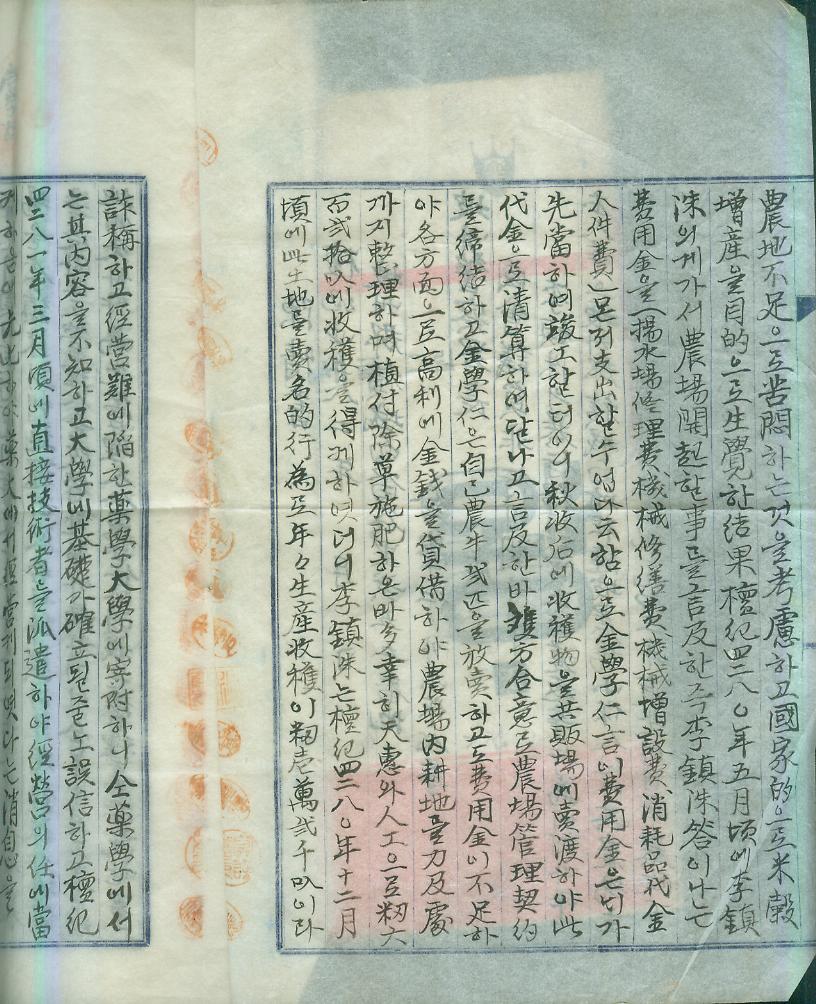 農地不足으로苦悶하는것을考慮하고國家的으로米穀
增産을目的으로生覺한結果檀紀四二八〇年五月頃에李鎭
洙의게가서農場開起한事를言及한즉李鎭洙答이나는
費用金을(揚水場修理費機械修繕費機械增設費消耗品代金
人件費)먼저支出할수업다云함으로金學仁言이費用金은니가
先當하여竣工할터이니秋收后에收穫物을共販場에賣渡하야此
代金으로淸算하여달나고言及한바雙方合意로農場管理契約
을締結하고金學仁은自己農牛弐匹을放賣하고도費用金이不足하
야各方面으로高利에金錢을貸借하야農場內耕地를力及處
까지整理하며植付除草施肥하은바多幸히天惠와人工으로籾六
百弐拾叺에收穫을得케하엿더니李鎭洙는檀紀四二八〇年十二月
頃에此土地를賣名的行為로年々生産收穫이籾壱萬弐千叺이라
詐稱하고經營難에陷한藥學大學에寄附하니仝藥學에서
는其內容을不知하고大學에基礎가確立될줄노誤信하고檀紀
四二八一年三月頃에直接技術者을派遣하야經營의任에當
藥大에서經營케되엿다는消息을